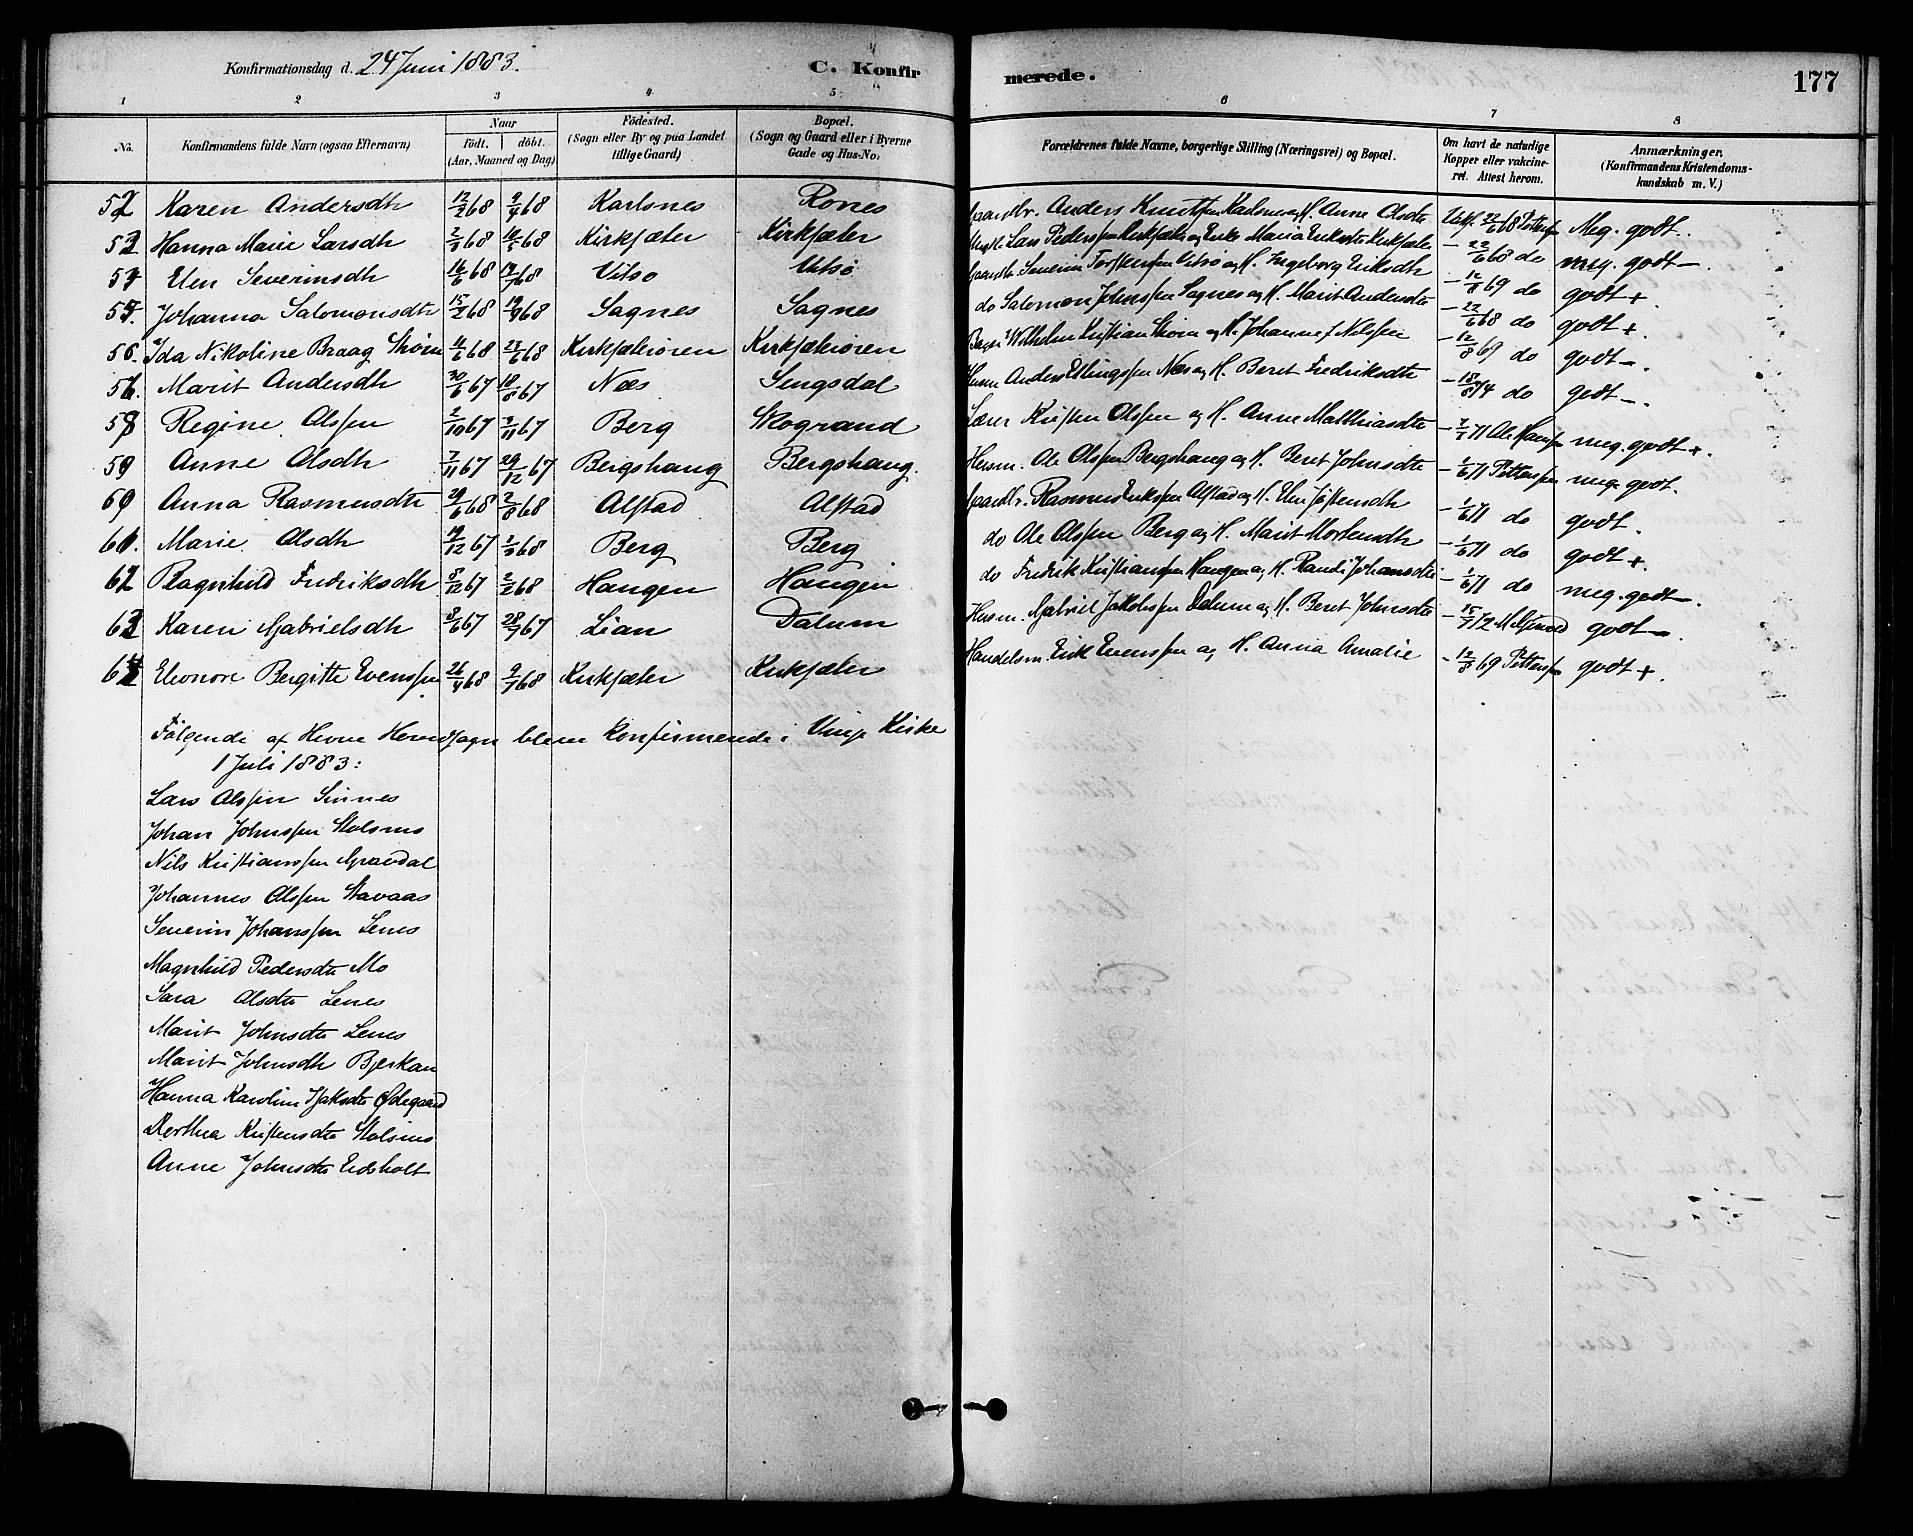 Konfirmationsdag d. 24 Juni 1883. C. Konfirmerede. 177
1 2 3 4 5 6 7 8
No. Konfirmandens fulde Navn (ogsaa Efternavn) Naar födt. döbt. (Aar, Maaned og Dag) Födested. (Sogn eller By og paa Landet tillige Gaard) Bopæl. (Sogn og Gaard eller i Byerne Gade og Hus-No. Forældrenes fulde Navne, borgerlige Stilling (Næringsvei) og Bopæl. Om havt de naturlige Kopper eller vakcineret. Attest herom. Anmærkninger. (Konfirmandens Kristendomskundskab m. V.)
52 Karen Andersdtr 12/2 68 9/4 68 Karlsnes Rones Gaardbr. Anders Knutssen Karlsnes og H. Anne Olsdtr Vakc. 22/6 68 Pettersen Meg. godt.
53 Hanna Marie Larsdtr 2/3 68 Kirksæter Kirksæter Lars Pederssen Kirksæter og Enke Maria Eriksdtr Kirksæter - 22/6 68 do meg. godt -.
54 Elen Severinsdtr 16/6 68 68 Vitsø Vitsø Gaardb. Severin Torstenssen Vitsø og H. Ingeborg Eriksdtr - 12/8 69 do godt +
55. Johanna Salomonsdtr 15/2 68 19/4 68 Sagnes Sagnes do Salomon Johnssen Sagnes og H. Marit Andersdtr - 22/6 68 do godt +
56. Ida Nikoline Braag Strøm 11/6 68 68 Kirksæterøren Kirksæterøren Wilhelm Kristian Strøm og H. Johanne f. Nilssen - 12/8 69 do godt -.
56. Marit Andersdtr 30/6 67 18/8 67 Næs Sengsdal Husm Anders Ellingssen Næs og H. Beret Fredriksdtr - 15/8 74 do godt -.
58 Regine Olssen 2/10 67 3/11 67 Berg Skogrand Lærer Kristen Olssen og H. Anne Matthiasdtr - 71 Ole Hanssen meg. godt +.
59 Anne Olsdtr 7/11 67 29/12 67 Bergshaug Bergshaug. Husm. Ole Olssen Bergshaug og H. Beret Johnsdtr - 1/6 71 Pettersen meg. godt.
60 Anna Rasmusdtr 29/6 68 2/8 68 Alstad Alstad Gaardbr. Rasmus Erikssen Alstad og H. Elen Jostensdtr - 1/6 71 do godt.
61. Marie Olsdtr 19/12 67 68 Berg Berg do Ole Olssen Berg og H. Marit Mortensdtr - 1/6 71 do godt +.
62 Ragnhild Fredriksdtr 8/12 67 2/2 68 Haugen Haugen do Fredrik Kristianssen Haugen og H. Randi Johansdtr - 1/6 71 do meg. godt -.
63 Karen Gabrielsdtr 8/6 67 28/7 67 Lian Dalum Husm. Gabriel Jakobssen Dalum og H. Beret Johnsdtr - 15/7 72 godt -.
64 Eleonore Bergitte Evenssen 26/4 68 9/7 68 Kirksæter Kirksæter Handelsm. Erik Evenssen og H. Anna Amalie - 12/8 69 Pettersen godt +.
Følgende af Hevne Hovedsogn bleve konfirmerede i Vinje Kirke
1 Juli 1883:
Lars Olssen Sinnes
Johan Johnssen Stolsmo
Nils Kristianssen Grøvdal
Johannes Olssen Stavaas
Severin Johanssen Lenes
Magnhild Pedersdtr Mo
Sara Olsdtr Lenes
Marit Johnsdtr Lenes
Marit Johnsdtr Bjerkan
Hanna Karoline Isaksdtr Ødegaard
Berthea Kristensdtr Stolsmo
Anne Johnsdtr Eidsholt